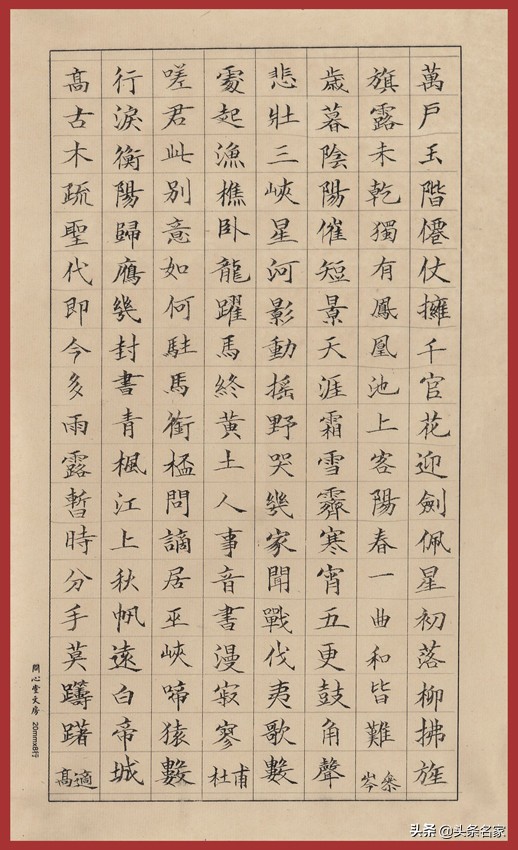 萬戶玉階僊仗擁千官花迎劍佩星初落柳拂旌
旗露未乾獨有鳳凰池上客陽春一曲和皆難 岑參
歲暮陰陽催短景天涯霜雪霽寒宵五更鼓角聲
悲壯三峽星河影動搖野哭幾家聞戰伐夷歌數
處起漁樵臥龍躍馬終黃土人事音書漫寂寥 杜甫
嗟君此別意如何駐馬銜桮問謫居巫峽啼猿數
行淚衡陽歸鴈幾封書青楓江上秋帆遠白帝城
高古木疏聖代即今多雨露暫時分手莫躊躇 高適
問心堂文房 20mmx8行
头条 @头条名家